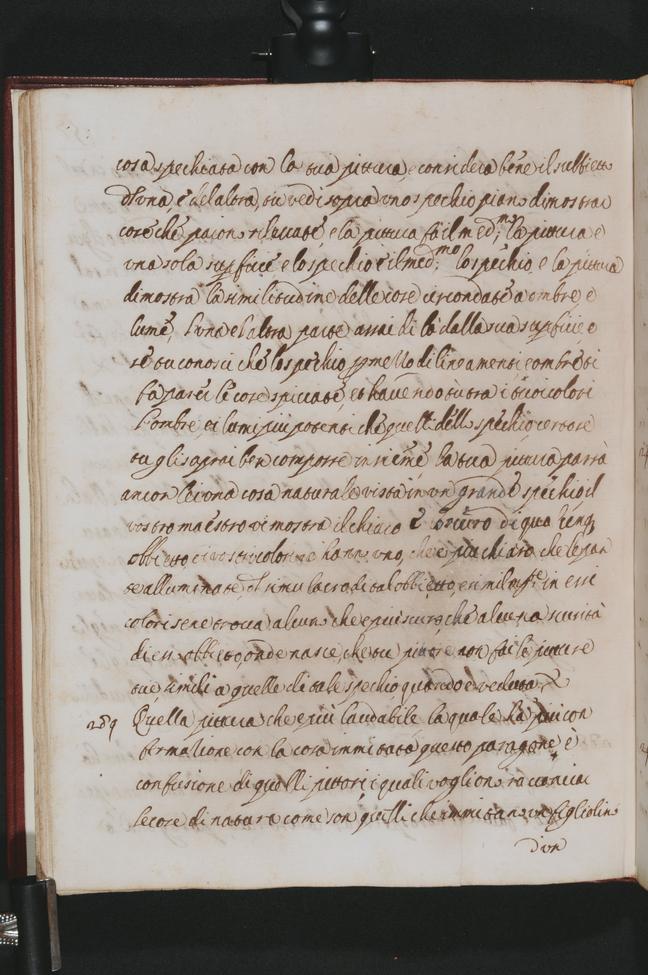 cosa spechiata con la tua pittura, e considera bene il subbietto
d'luna è del altra, tu vedi sopra uno spechio piano dimostrar
cose che paion rilevate, e la pittura fà il med.mo; la pittura è
una sola superficie e lo spechio è il med.mo; lo spechio, e la pittura
dimostra la similitudine delle cose circondate a ombre, e
lume, l'una e l'altra pare assai di là dalla sua superficie, e
se tu conosci che lo spechio per mezzo di lineamenti e ombre ti
fà parer le cose spiccate, et havendo tu tra i tuoi colori
l'ombre, ei lumi più potenti che quelli dello spechio certo se
tu gli saprai ben comporre insieme la tua pittura parrà
ancor lei una cosa naturale vista in un grande spechio il
vostro maestro vi mostra il chiaro è l'oscuro di qualunq
obbietto ei vostri colori ne hanno uno, che è più chiaro, che le par
te alluminate, d'simulacro di tal obbietto, e similm.te in essi
colori se ne trova alcuno che è più scuro che alcuna scurità
di esso obbietto, onde nasce, che tu pittore non fai le pitture
tue simili a quelle di tale spechio quando è veduta
289 Quella pittura che è più laudabile la quale ha più con
formatione con la cosa immitata questo paragone è
confusione di quelli pittori, i quali voglion racconciar
le cose di natura come son quelli che immitano un figliolino
d'un